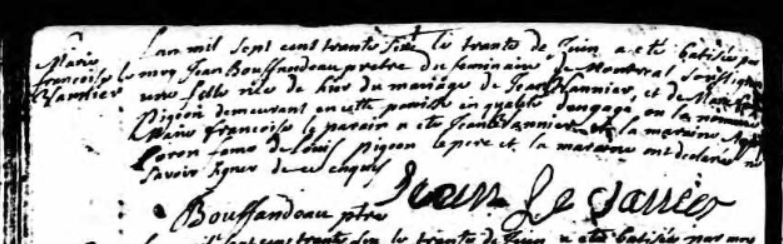 Marie
francoise le
Vannier
Lan mil Sept cent trente Six le trente de Juin a eté batisée par
moy Jean Bouffandeau pretre du seminaire de Montreal soussigné
une fille née de hier du mariage de Jean Vannier, et de Marie
Pigeon demeurant en cette paroisse en qualité dengagé on la nommée
Marie francoise le parain a eté Jean Vannier et la maraine
Loron fame de Louis pigeon le pere et la maraine ont declarés ne
Savoir signer de ce enquis
Jean Le
Bouffandeau ptre
le trente de Juin a eté batisée par moy